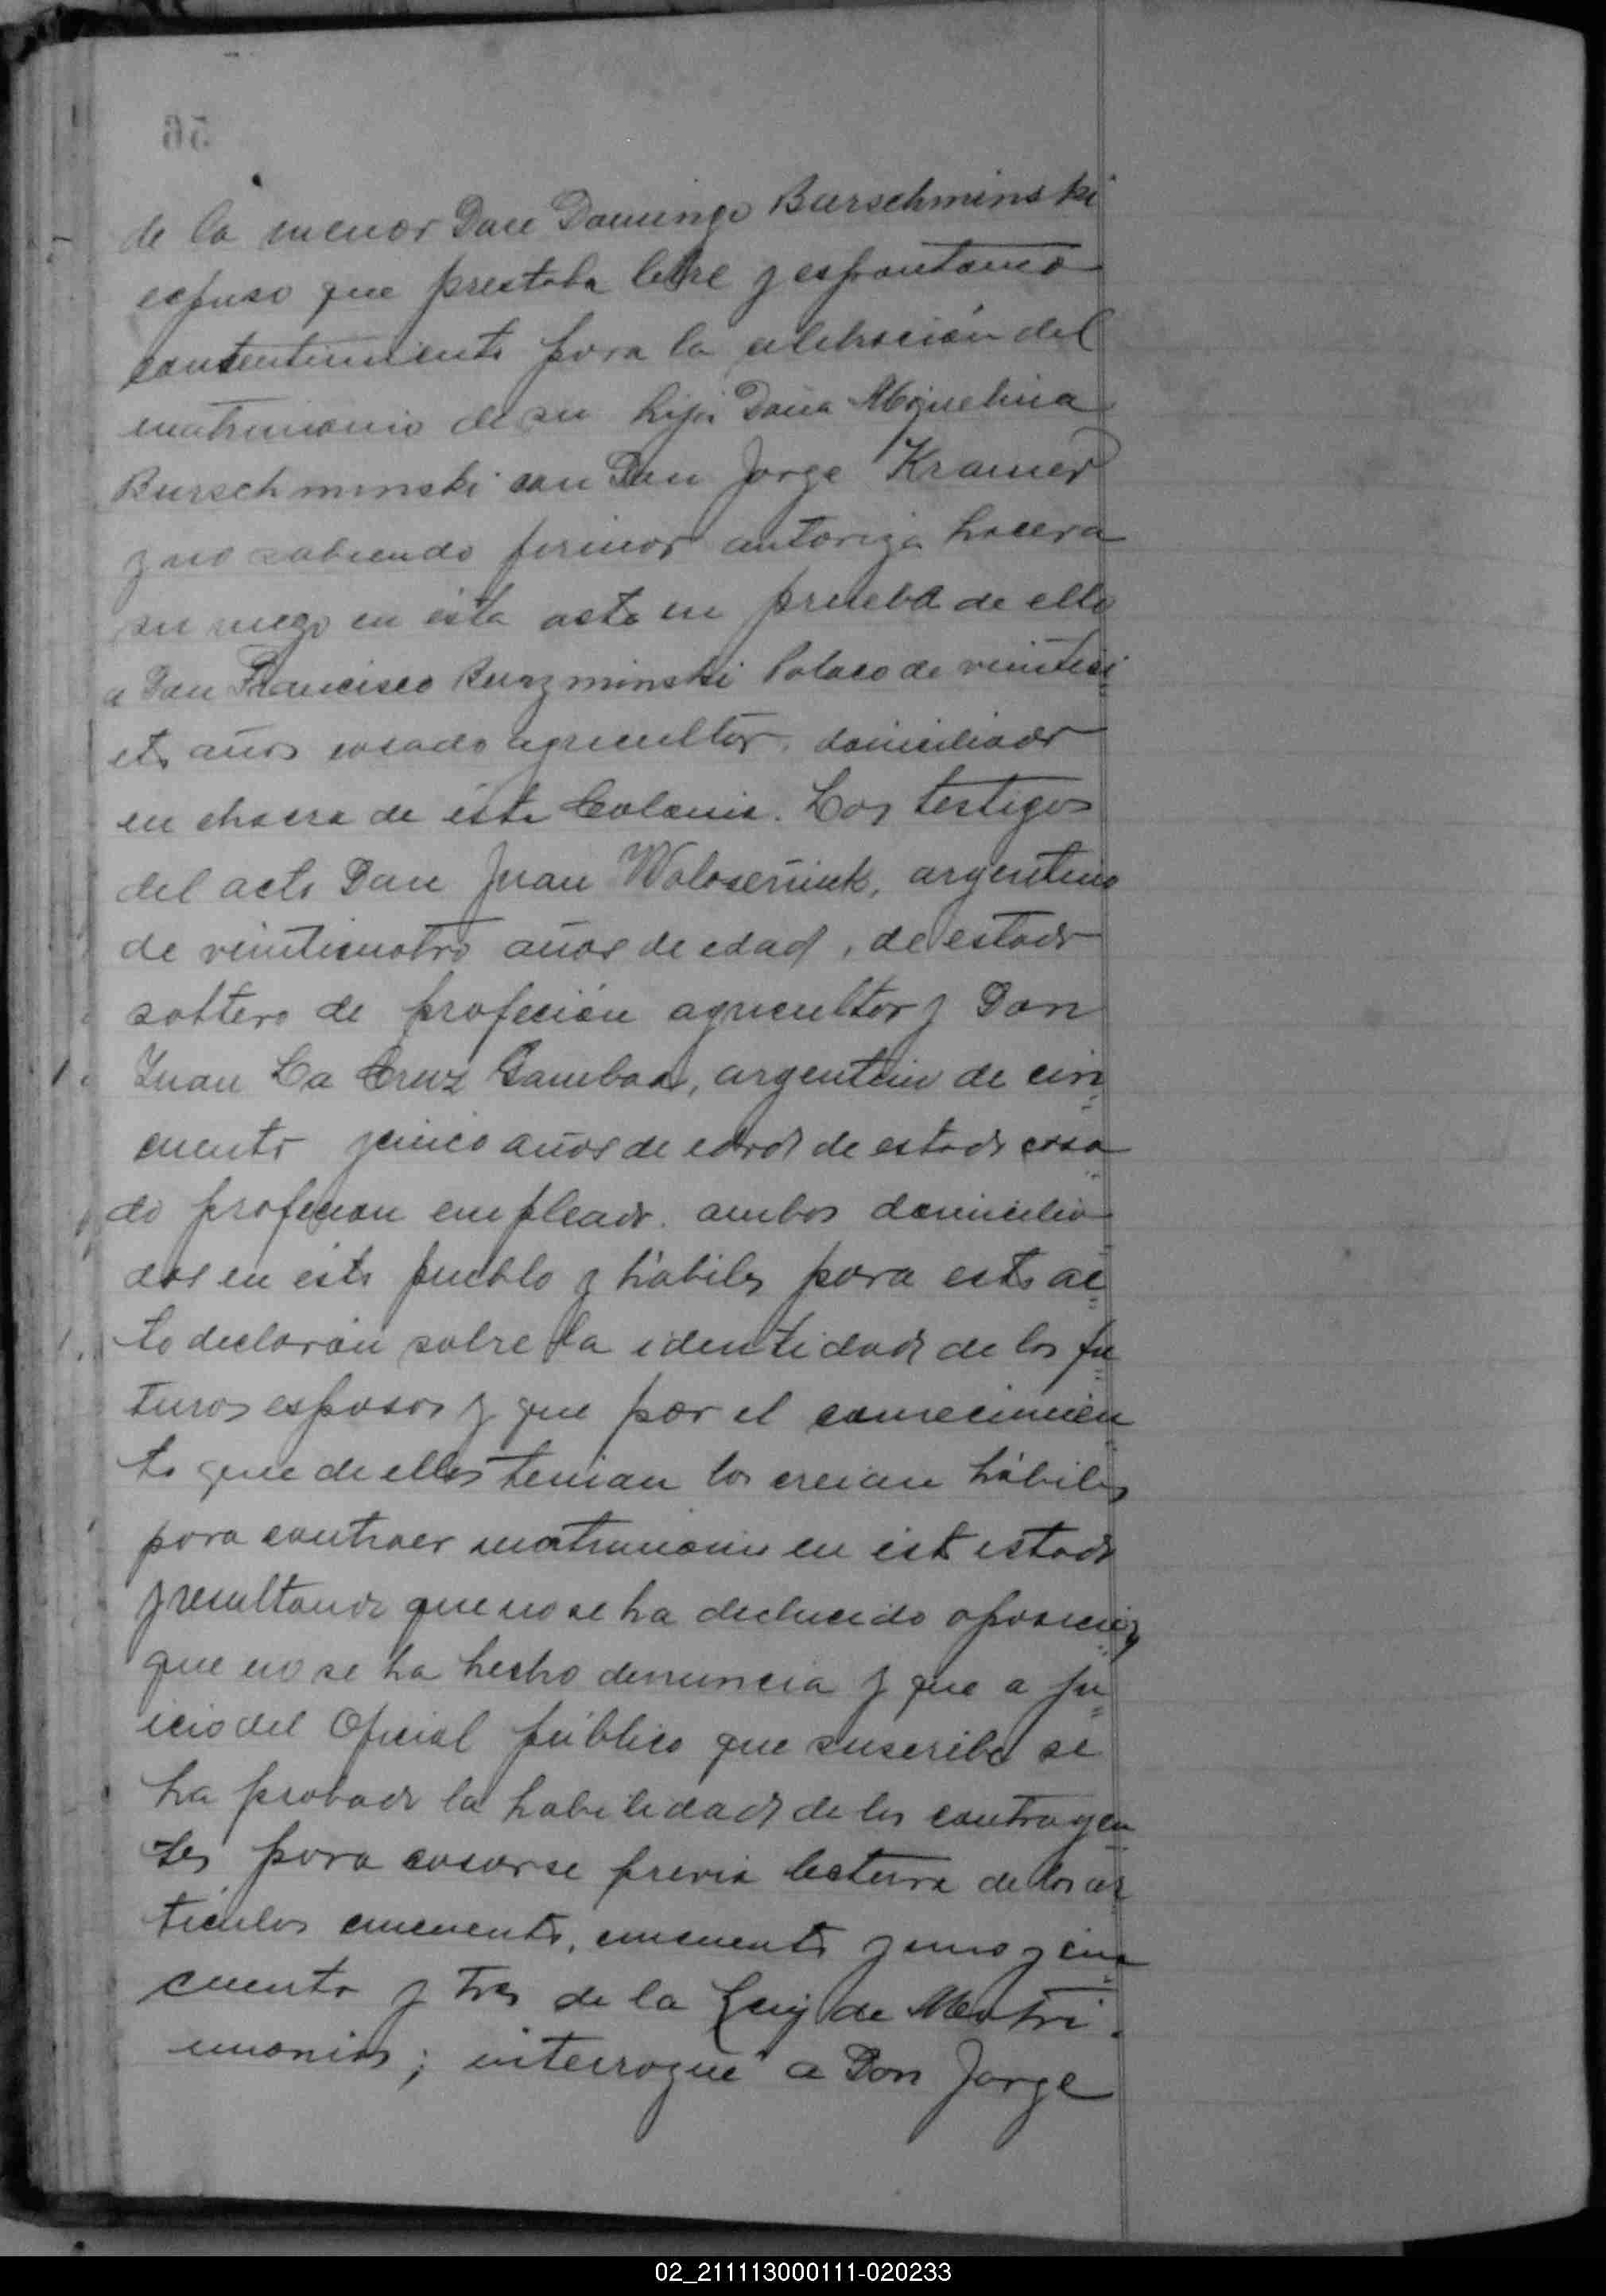 de la menor Don Domingo Burschminski
espuso que prestaba libre y espontaneo
consentimiento para la celebración del
matrimonio de su hija Doña Miguelina
Burschminski con Don Jorge Kramer
y no sabiendo firmar autoriza hacer a
su ruego en ésta acta en prueba de ello
a Don Francisco Burzminski Polaco de veintisi
ete años casado agricultor, domiciliado
en chacra de ésta Colonia. Los testigos
del acto Don Juan Woloseñiuk, argentino
de veinticuatro años de edad, de estado
soltero de profeción agricultor y Don
Juan La Cruz Gamboa, argentino de cin
cuenta y cinco años de edad de estado casa
do profecion empleado. ambos domicilia
dos en éste pueblo y hábiles para este ac
to declarán sobre la identidad de los fu
turos esposos y que por el conocimien
to que de ellos tenian los creian hábiles
para contraer matrimonio en éste estado
y resultando que no se ha deducido oposición
que no se ha hecho denuncia y que a ju
icio del Oficial público que suscribe se
ha probado la habilidad de los contrayen
tes para casarse previa lectura de los ar
ticulos cincuenta, cincuenta y uno y cin
cuenta y tres de la Ley de Matri
monios; interrogué a Don Jorge
02_211113000111-020233